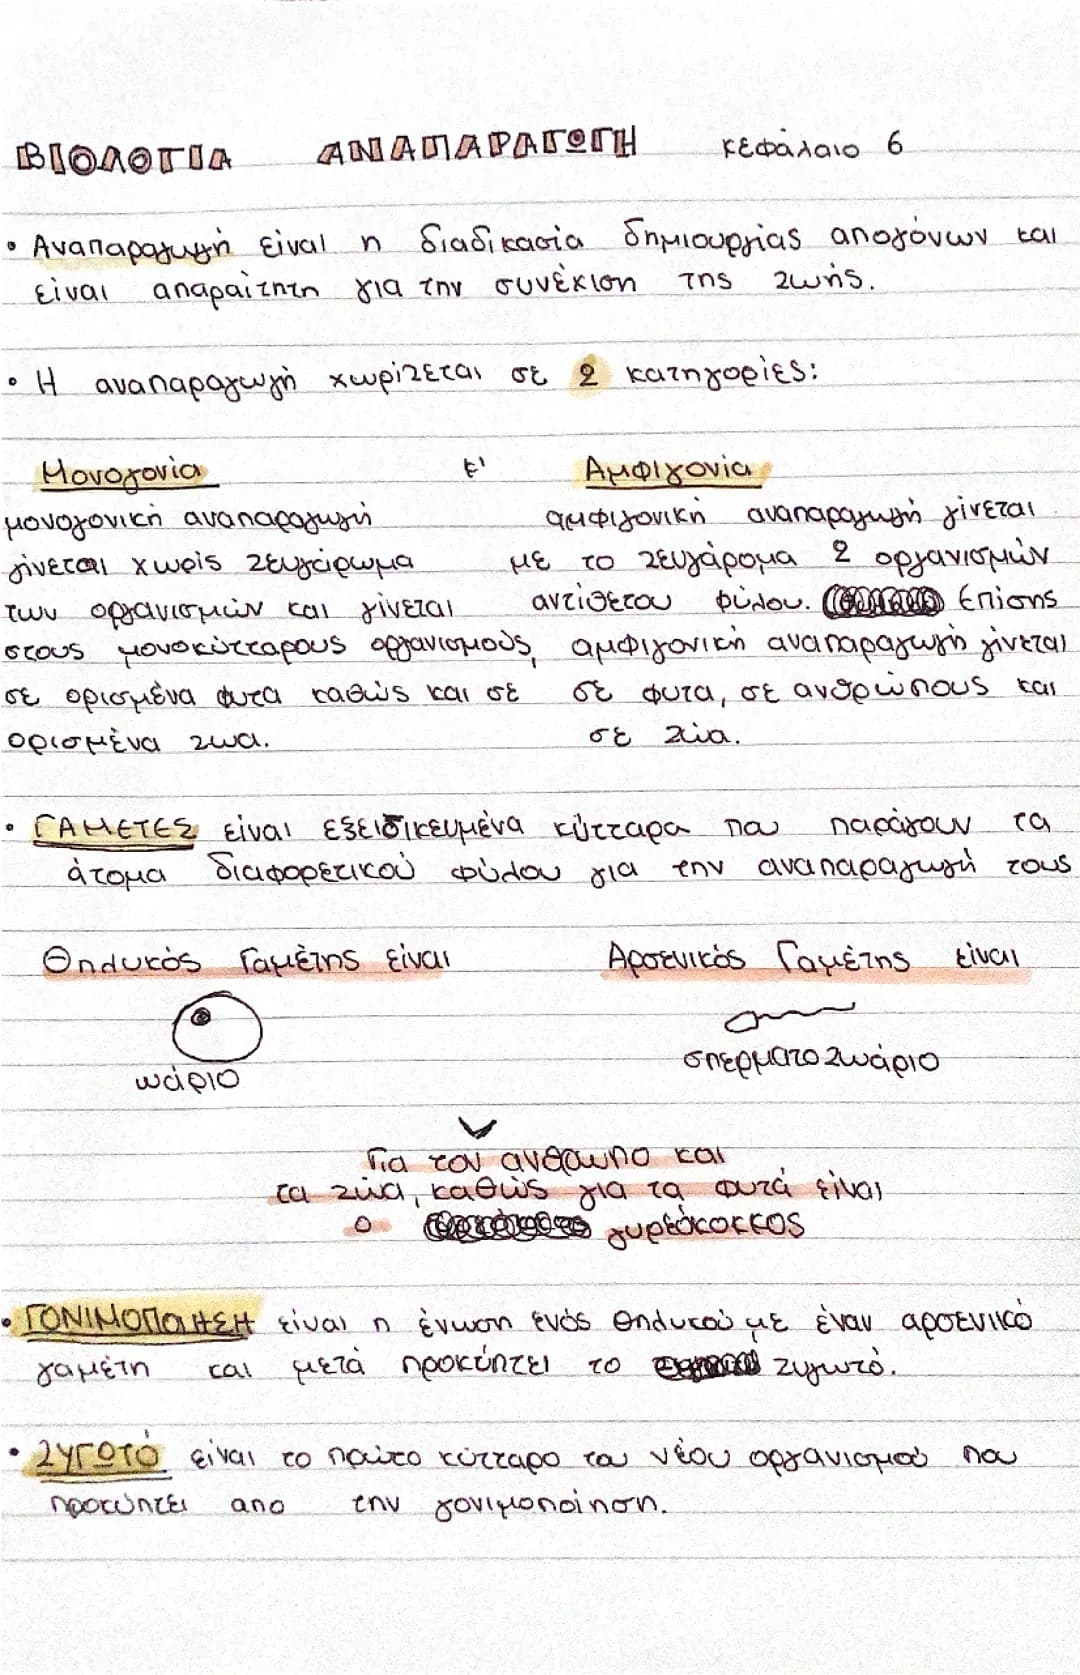 ΒΙΟΛΟΓΙΑ ΑΝΑΠΑΡΑΓΩΓΗ κεφάλαιο 6
• Αναπαραγωγή είναι η διαδικασία δημιουργίας απογόνων και
είναι απαραίτητη για την συνέχιση της ζωής.
• Η αναπαραγωγή χωρίζεται σε 2 κατηγορίες:
Μονογονία
μονογονική αναπαραγωγή
γίνεται χωρίς ζευγάρωμα
των οργανισμών και γίνεται
στους μονοκύτταρους οργανισμούς,
σε ορισμένα φυτα καθώς και σε
ορισμένα ζωα.
Αμφιγονία
αμφιγονική αναπαραγωγή γίνεται
με το ζευγάρομα 2 οργανισμών
αντίθετου φύλου. Επίσης
αμφιγονική αναπαραγωγή γίνεται
σε φυτα, σε ανθρώπους και
σε ζώα.
• ΓΑΜΕΤΕΣ είναι εξειδικευμένα κύτταρα που παράγουν τα
άτομα διαφορετικού φύλου για την αναπαραγωγή τους
Θηλυκός Γαμέτης είναι
ωάριο
Αρσενικός Γαμέτης είναι
σπερματοζωάριο
Για τον άνθρωπο και
τα ζώα, καθώς για τα φυτά είναι
ο γυρεόκοκκος
• ΓΟΝΙΜΟΠΟΙΗΣΗ είναι η ένωση ενός θηλυκού με έναν αρσενικό
γαμέτη και μετά προκύπτει το ζυγωτό.
• ΖΥΓΩΤΟ είναι το πρώτο κύτταρο του νέου οργανισμού που
προκύπτει απο την γονιμοποίηση.